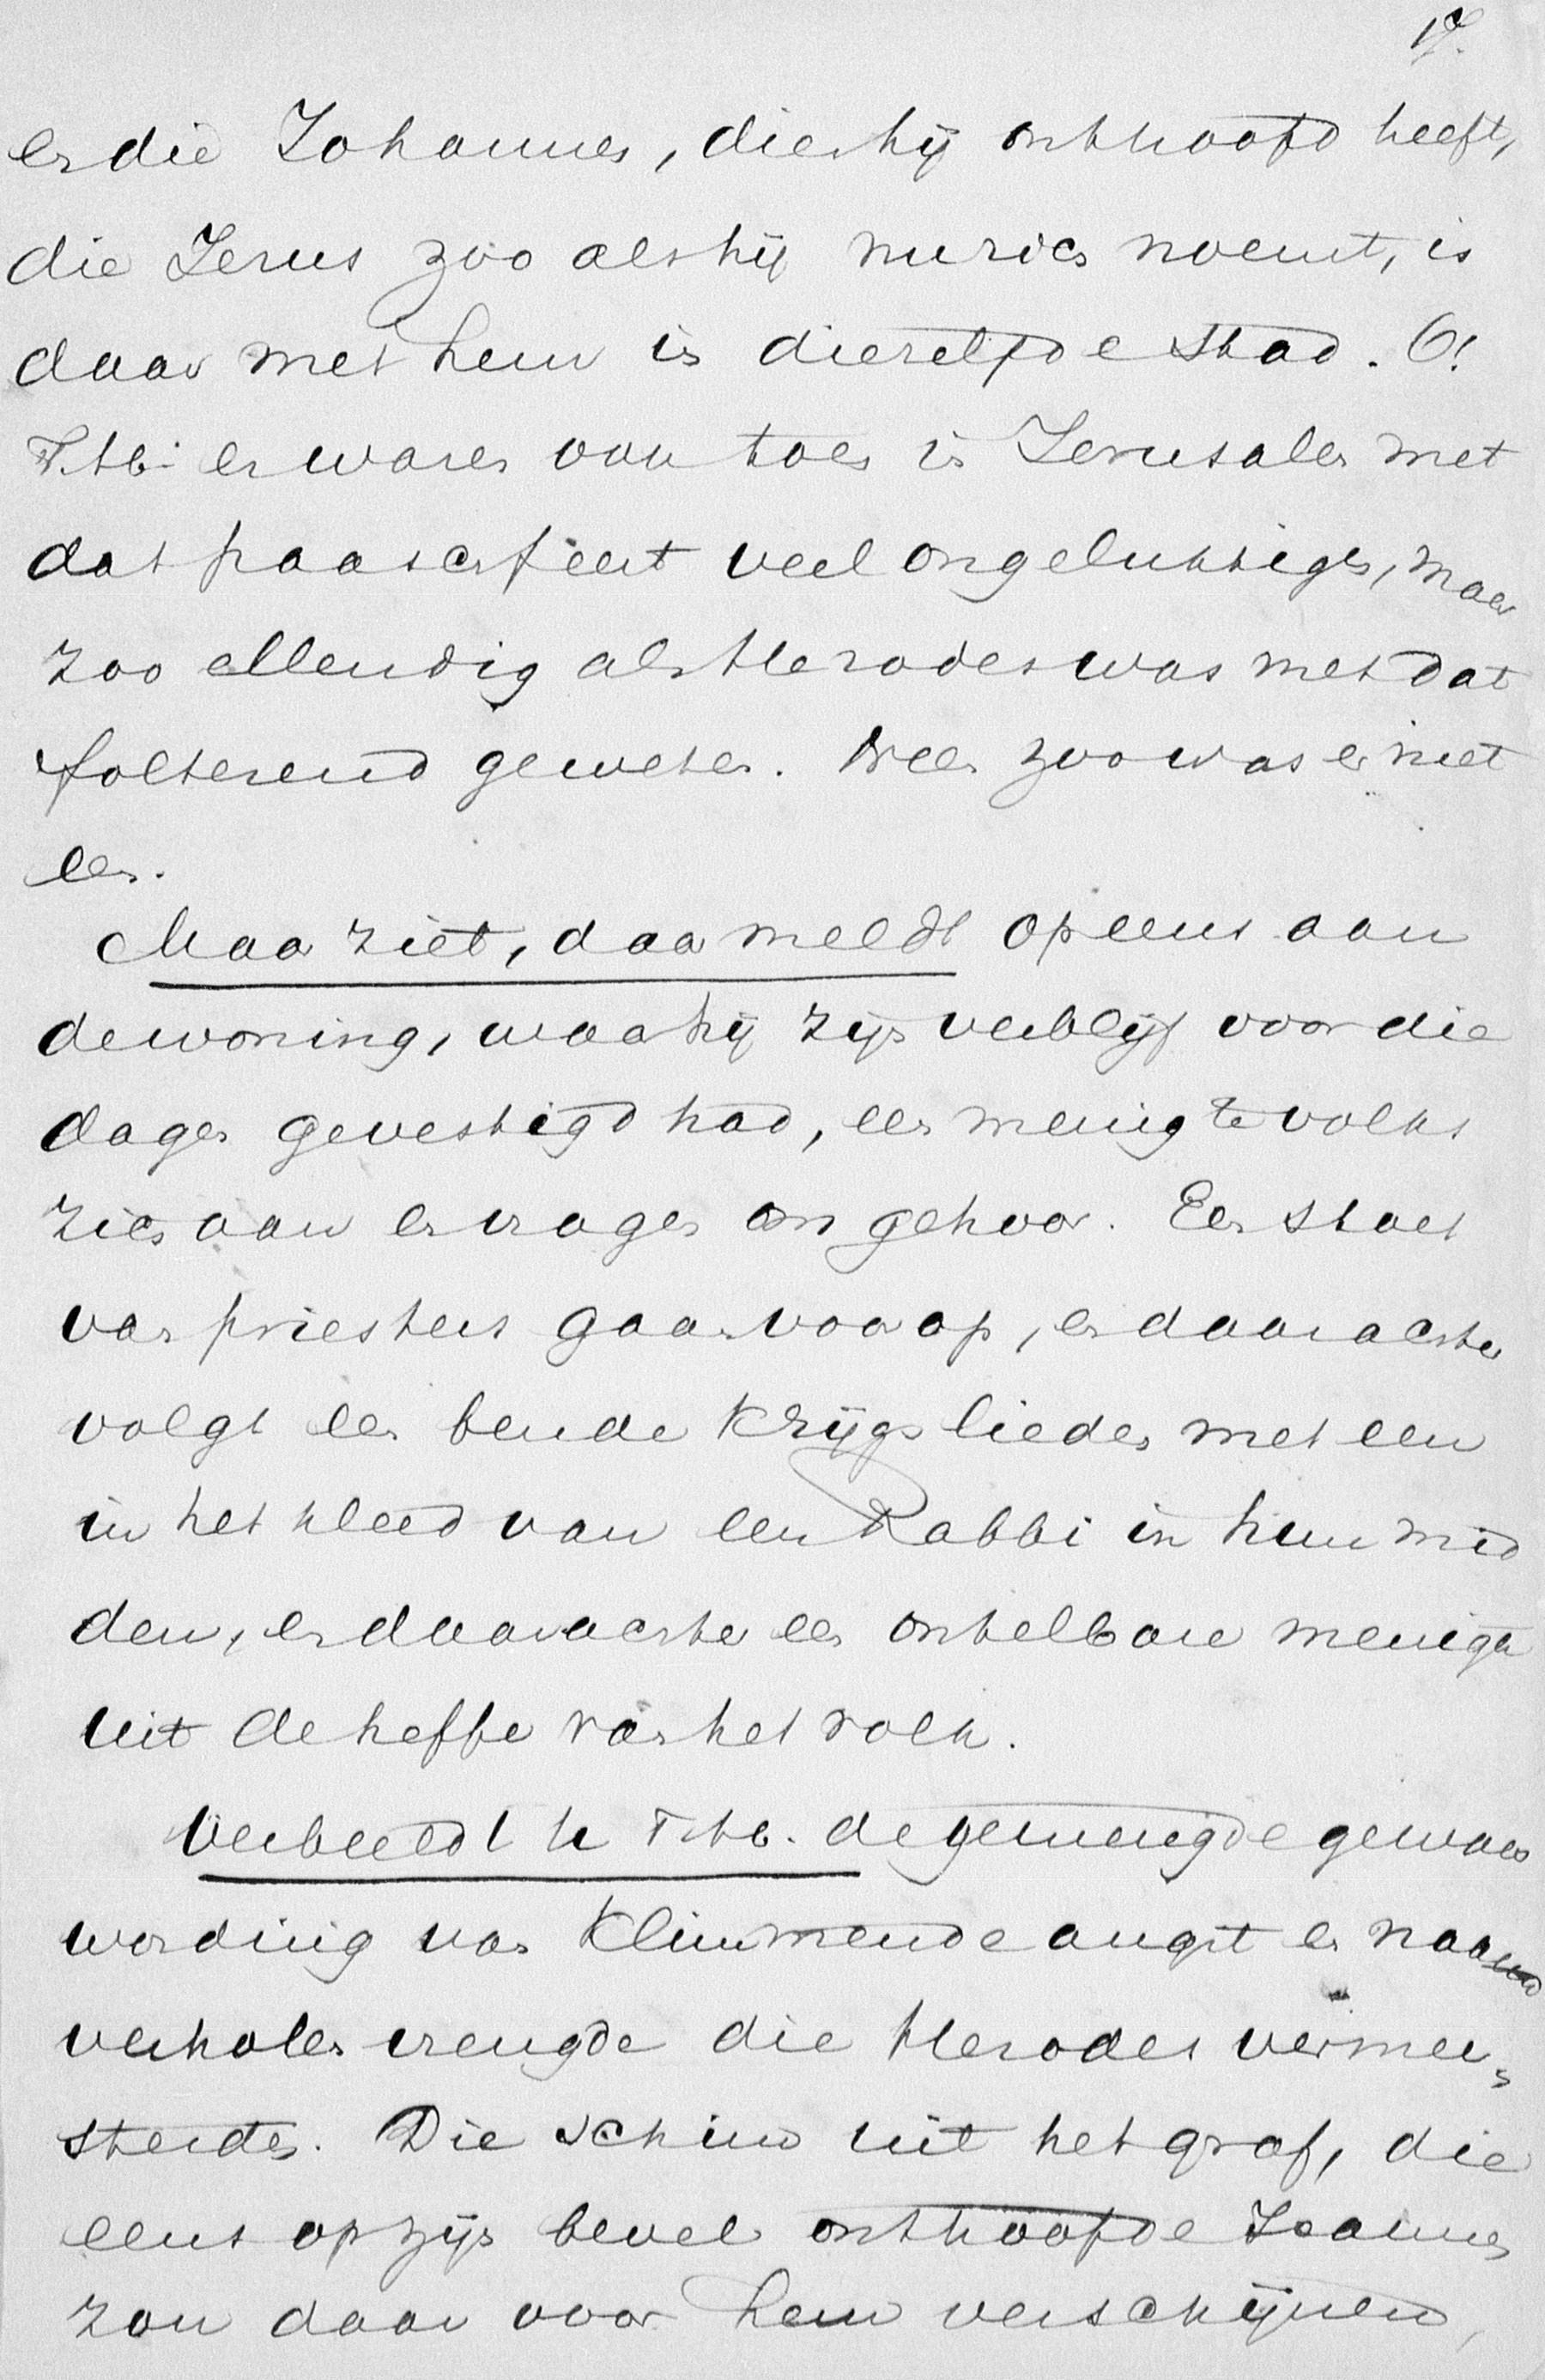 17.
en die Johannes, die hij onthoofd heeft,
die Jesus zoo als hij muzien noemt, is
daar met hem in diezelfde stad. O!
T. tb. er waren van toen in Jerusalem met
dat paaschfeest veel ongelukkigen, maar
zoo ellendig als Herodes was met dat
folterend geweten. Neen zoo was er niet
een.
Maar ziet, daar meldt opeens aan
de woning, waar hij zijn verblijf voor die
dagen gevestigd had, een menigte volks
zich aan en vragen om gehoor. Een stoet
van priesters gaan voorop, en daarachter
volgt een bende krijgslieden met een
in het kleed van een Rabbi in hun mid
den, en daarachter een ontelbare menigte
uit de heffe van het volk.
Verbeeldt u T. tb. de gemengde gewaar
wording van klimmende angst en naauw
verholen vreugde die Herodes vermee,,
sterden. Die schim uit het graf, die
eens op zijn bevel onthoofde Joannes
zou daar voor hem verschijnen,